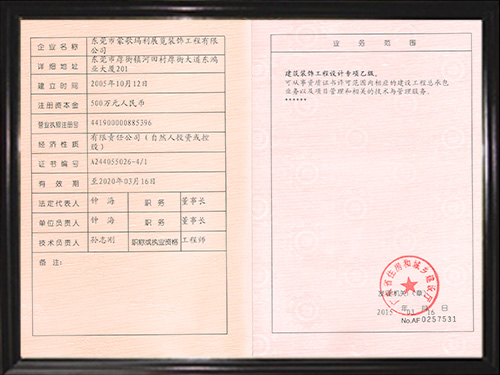 企业名称 东莞市蒙歌玛利展览装饰工程有限公司
详细地址 东莞市厚街镇河田村厚街大道东鸿业大厦201
建立时间 2005年10月12日
注册资本金 500万元人民币
营业执照注册号 441900000885396
经济性质 有限责任公司（自然人投资或控股）
证书编号 A244055026-4/1
有效期 至2020年03月16日
法定代表人 钟 海 职务 董事长
单位负责人 钟 海 职务 董事长
技术负责人 孙志刚 职称或执业资格 工程师
备注：
业务范围
建筑装饰工程设计专项乙级。
可从事资质证书许可范围内相应的建设工程总承包
业务以及项目管理和相关的技术与管理服务。
******
广东省住房和城乡建设厅
发证机关：（章）
2015 年 03 月 16 日
No.AF 0257531